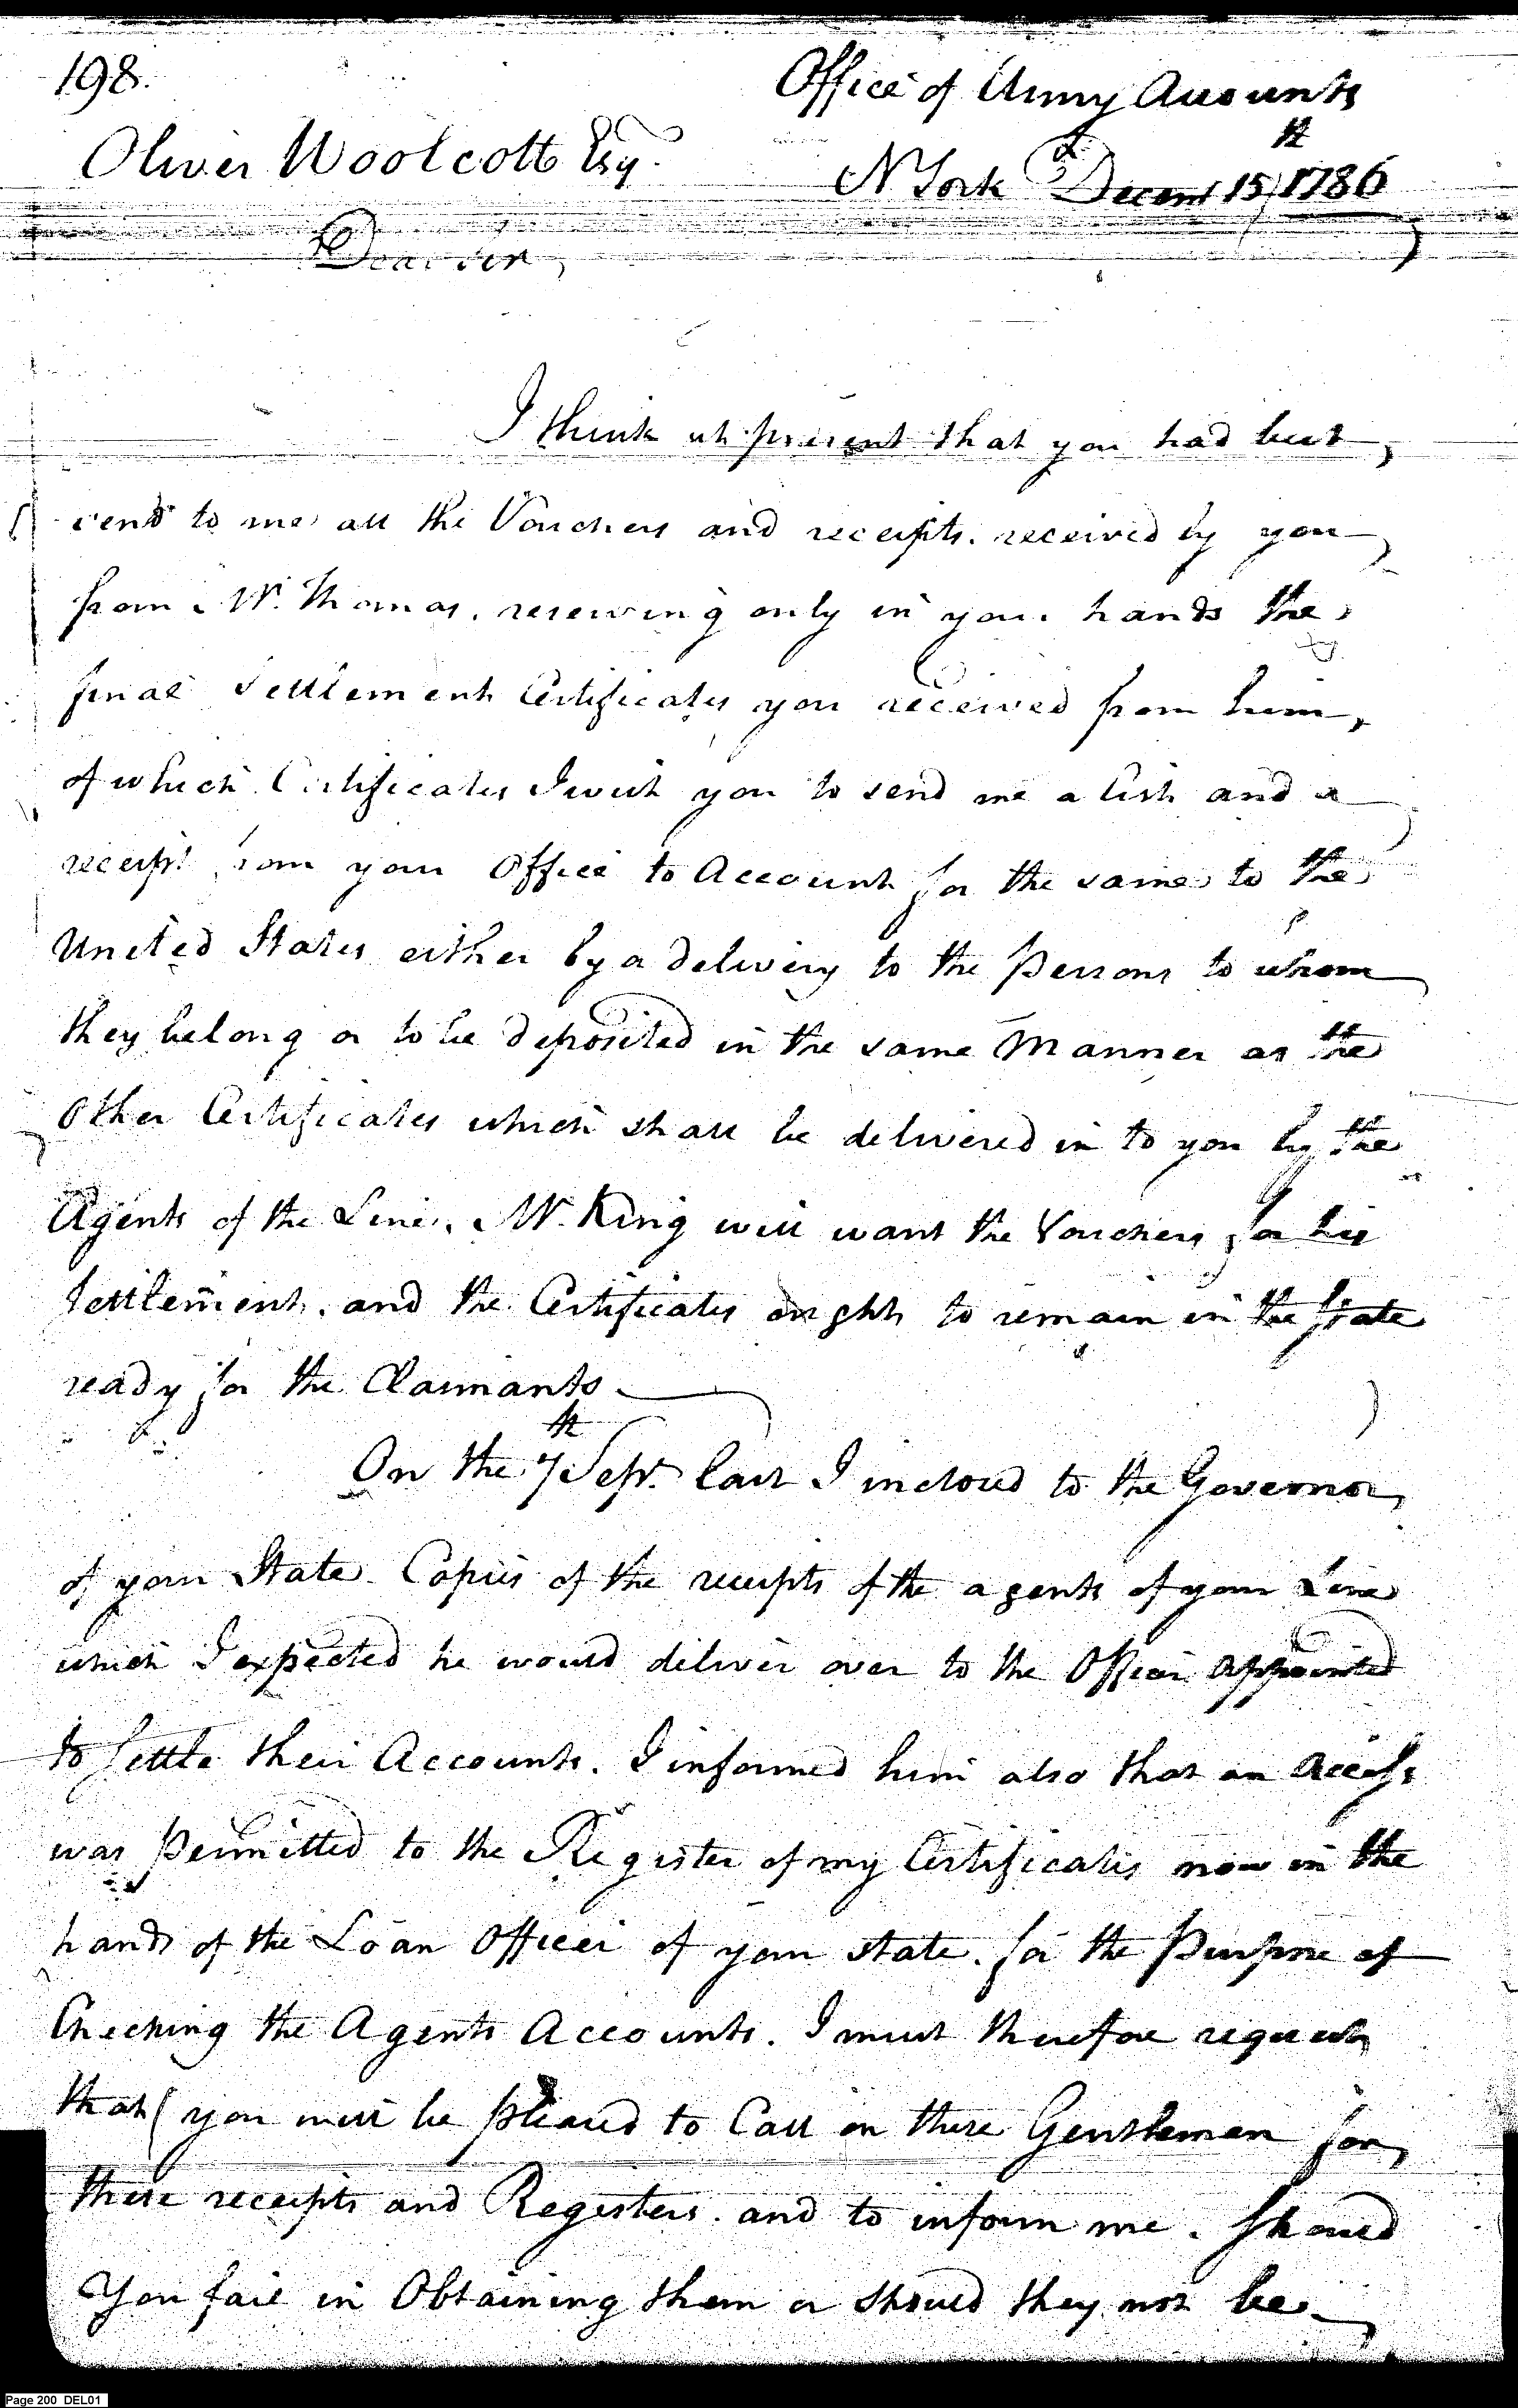 198.
Office of Army Accounts
Oliver Woolcott Esq.
N York Decemr 15th 1786
Dear Sir,
I think at present that you had best
send to me all the Vouchers and receipts. received by you
from Mr. Thomas, reserving only in your hands the
final Settlement Certificates you received from him,
of which Certificates I wish you to send me a list and a
receipt from your Office to Account for the same to the
United States either by a delivery to the Persons to whom
they belong or to be deposited in the same Manner as the
Other Certificates which shall be delivered in to you by the
Agents of the Line. Mr. King will want the Vouchers for his
Settlement. and the Certificates ought to remain in the State
ready for the Claimants.
On the 7th Sepr. last I inclosed to the Governor
of your State Copies of the receipts of the agents of your Line
which I expected he would deliver over to the Officer appointed
to Settle their Accounts. I informed him also that an Access
was Permitted to the Register of my Certificates now in the
hands of the Loan Officer of your state. for the Purpose of
Checking the Agents Accounts. I must therefore request
that you will be pleased to Call on these Gentlemen for
these receipts and Registers. and to inform me. Should
You fail in Obtaining them or should they not be
Page 200 DEL01